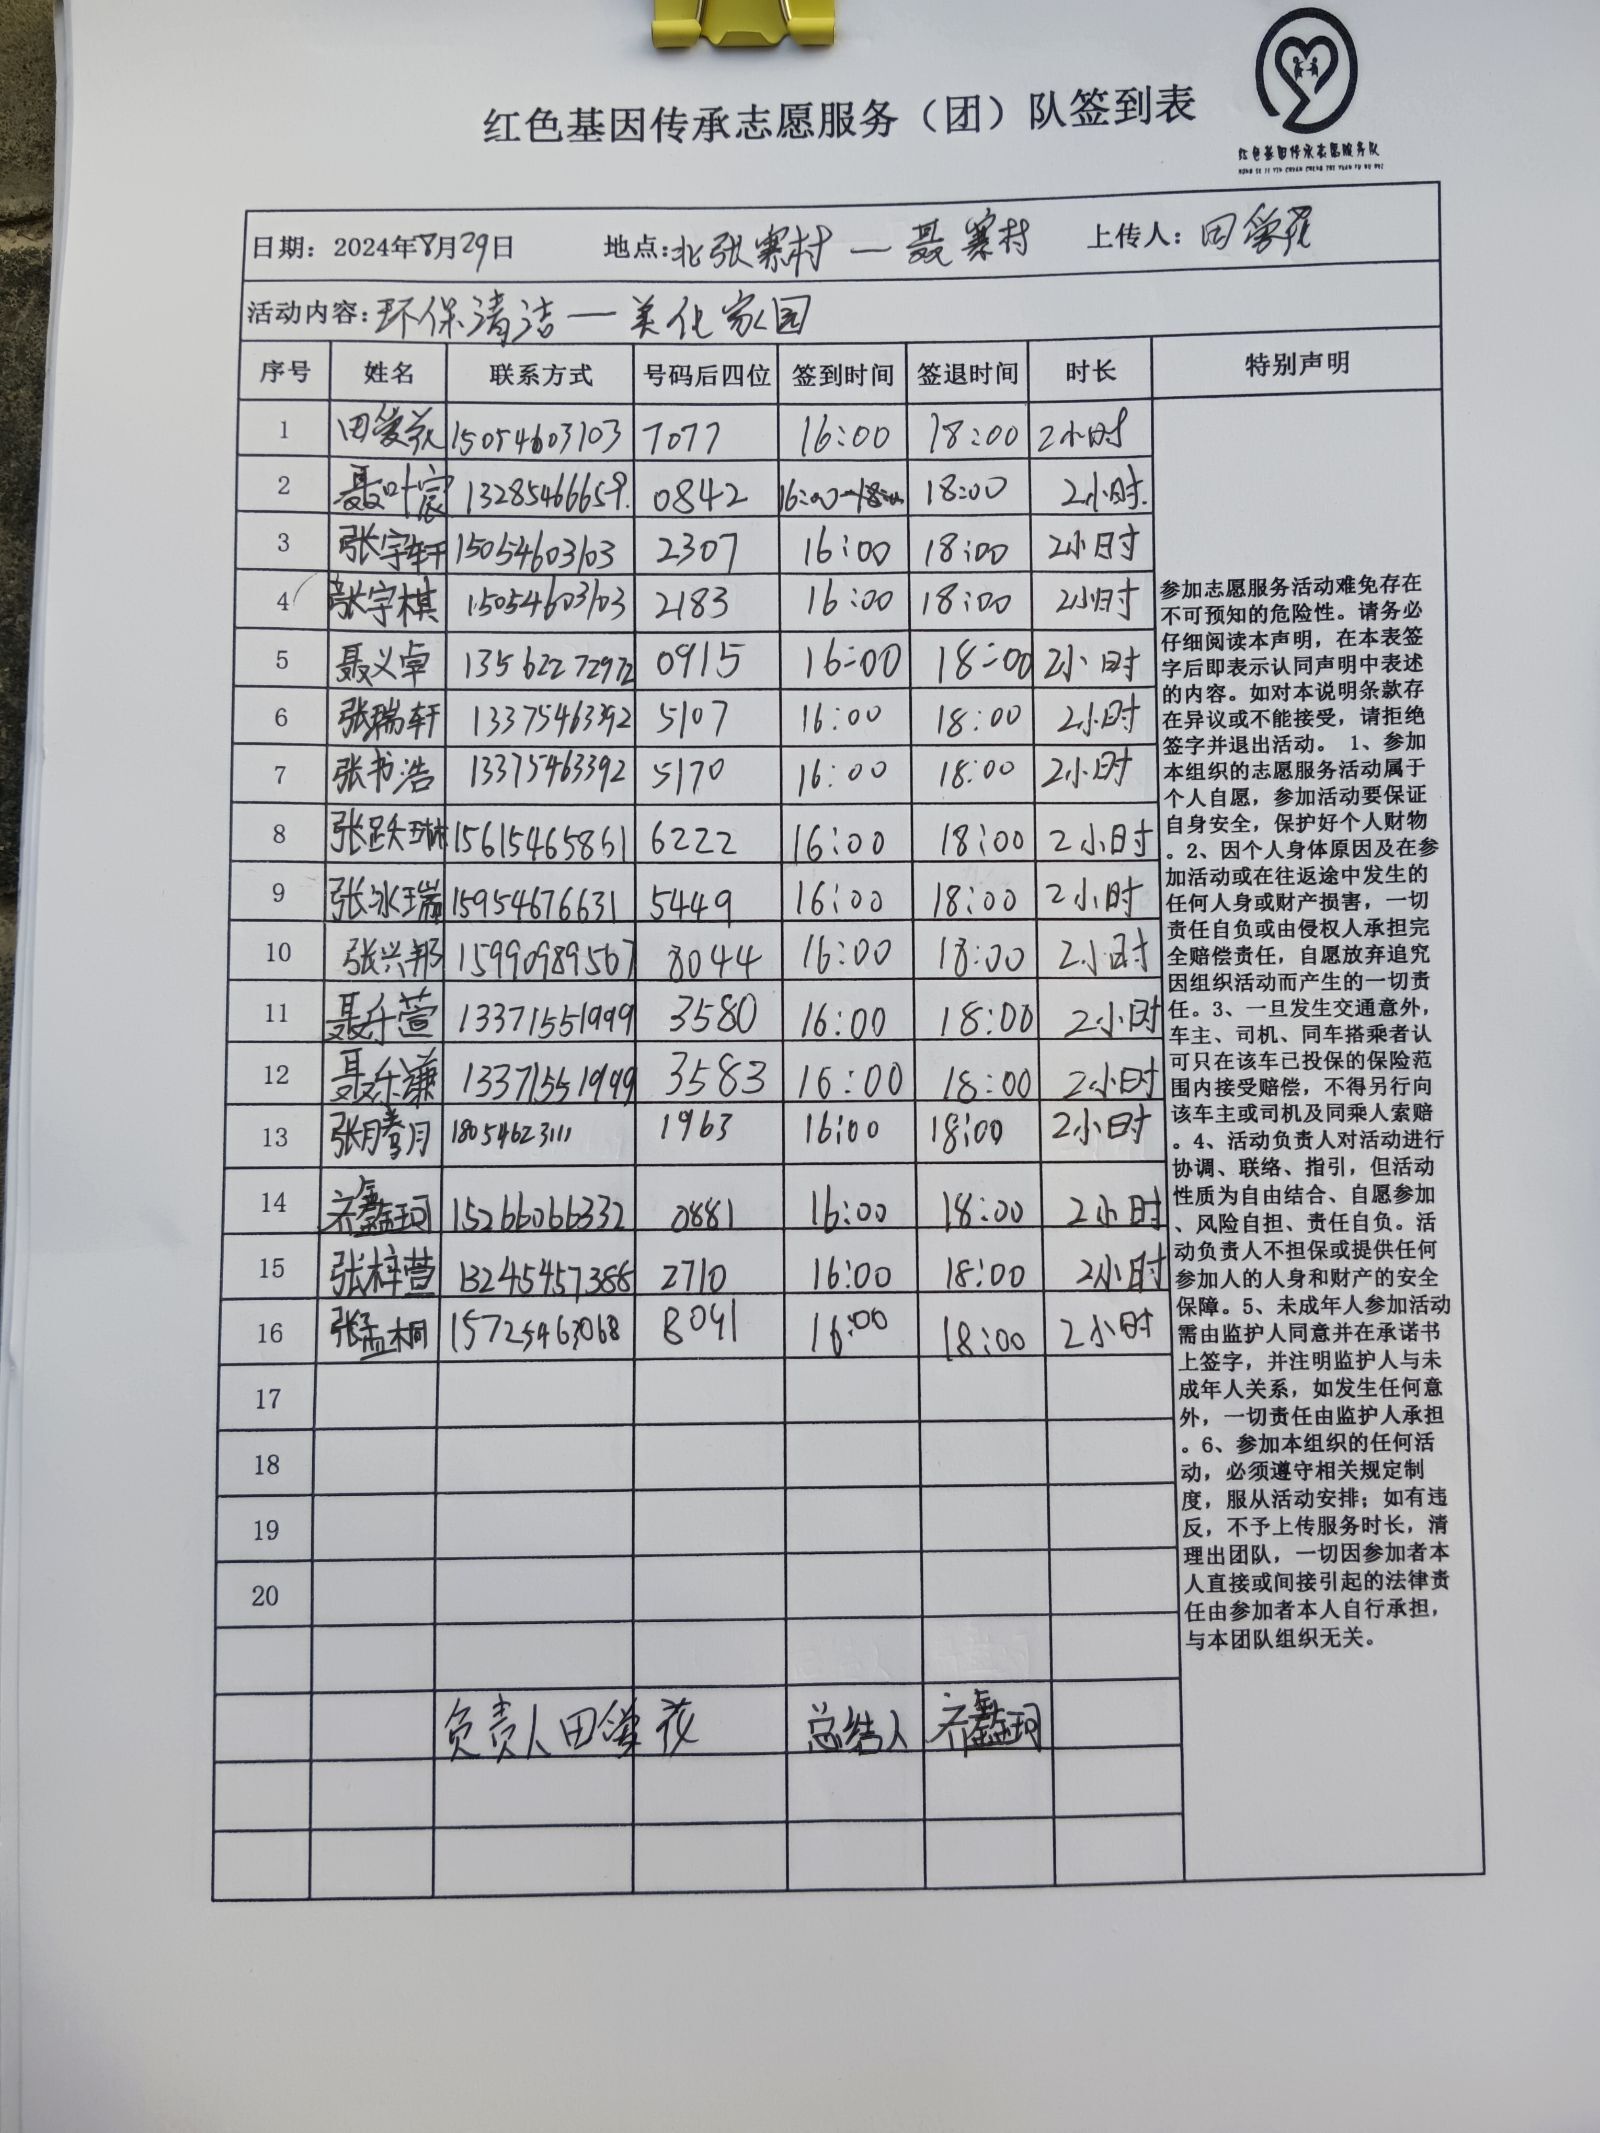 红色基因传承志愿服务（团）队签到表
红色基因传承志愿服务队
HONG SE JI YIN CHUAN CHENG ZHI YUAN FU WU DUI
日期：2024年8月29日 地点:北张寨村—聂寨村 上传人：田爱花
活动内容:环保清洁—美化家园
序号 姓名 联系方式 号码后四位 签到时间 签退时间 时长 特别声明
1 田爱花 15054603103 7077 16:00 18:00 2小时
2 聂叶宸 13285466659. 0842 16:00-18:00 18:00 2小时.
3 张宇轩 15054603103 2307 16:00 18:00 2小时
4 张宇棋 15054603103 2183 16:00 18:00 2小时
5 聂义卓 13562272972 0915 16:00 18:00 2小时
6 张瑞轩 13375463392 5107 16:00 18:00 2小时
7 张书浩 13375463392 5170 16:00 18:00 2小时
8 张跃琳 15615465861 6222 16:00 18:00 2小时
9 张冰瑞 15954676631 5449 16:00 18:00 2小时
10 张兴邦 15990989567 8044 16:00 18:00 2小时
11 聂乐萱 13371551999 3580 16:00 18:00 2小时
12 聂乐谦 13371551999 3583 16:00 18:00 2小时
13 张腾月 18054623111 1963 16:00 18:00 2小时
14 齐鑫珂 15266066332 0881 16:00 18:00 2小时
15 张梓萱 13245457388 2710 16:00 18:00 2小时
16 张孟桐 15725463068 8041 16:00 18:00 2小时
17
18
19
20
负责人田爱花 总结人 齐鑫珂
参加志愿服务活动难免存在
不可预知的危险性。请务必
仔细阅读本声明，在本表签
字后即表示认同声明中表述
的内容。如对本说明条款存
在异议或不能接受，请拒绝
签字并退出活动。 1、参加
本组织的志愿服务活动属于
个人自愿，参加活动要保证
自身安全，保护好个人财物
。2、因个人身体原因及在参
加活动或在往返途中发生的
任何人身或财产损害，一切
责任自负或由侵权人承担完
全赔偿责任，自愿放弃追究
因组织活动而产生的一切责
任。3、一旦发生交通意外，
车主、司机、同车搭乘者认
可只在该车已投保的保险范
围内接受赔偿，不得另行向
该车主或司机及同乘人索赔
。4、活动负责人对活动进行
协调、联络、指引，但活动
性质为自由结合、自愿参加
、风险自担、责任自负。活
动负责人不担保或提供任何
参加人的人身和财产的安全
保障。5、未成年人参加活动
需由监护人同意并在承诺书
上签字，并注明监护人与未
成年人关系，如发生任何意
外，一切责任由监护人承担
。6、参加本组织的任何活
动，必须遵守相关规定制
度，服从活动安排；如有违
反，不予上传服务时长，清
理出团队，一切因参加者本
人直接或间接引起的法律责
任由参加者本人自行承担，
与本团队组织无关。